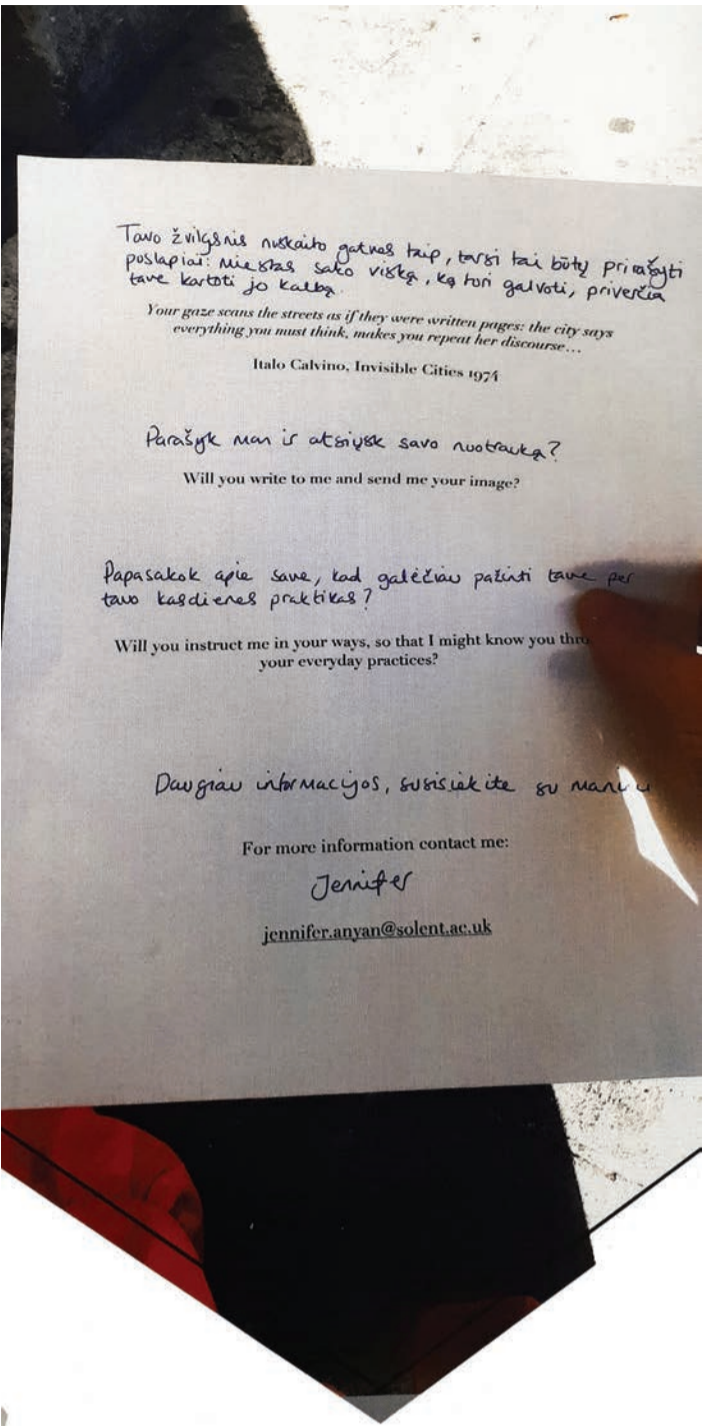 Tavo žvilgsnis nuskaito gatves taip, tarsi tai būtų prirašyti
poslapiai: miestas sako viską, ką turi galvoti, priverčia
tave kartoti jo kalbą.
Your gaze scans the streets as if they were written pages: the city says
everything you must think, makes you repeat her discourse...
Italo Calvino, Invisible Cities 1974
Parašyk man ir atsiųsk savo nuotrauką?
Will you write to me and send me your image?
Papasakok apie save, kad galėčiau pažinti tave per
tavo kasdienes praktikas?
Will you instruct me in your ways, so that I might know you thro
your everyday practices?
Daugiau informacijos, susisiekite su
For more information contact me:
Jennifer
jennifer.anyan@solent.ac.uk